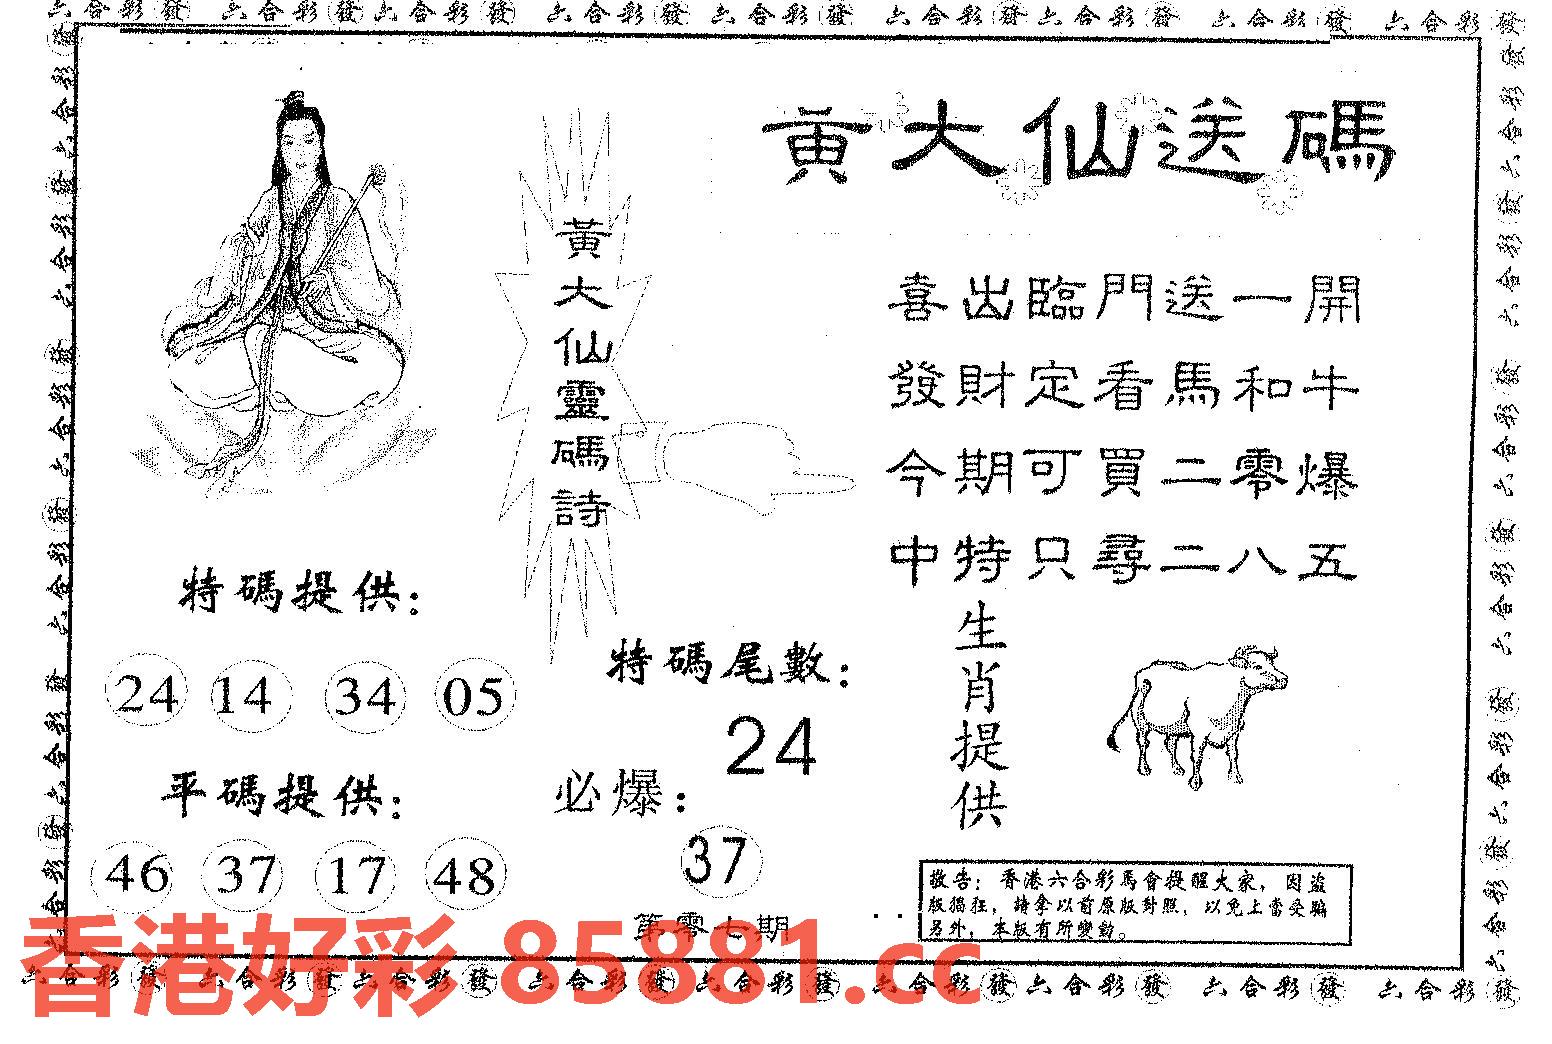 六合彩發 六合彩發六合彩發 六合彩發 六合彩發 六合彩發六合彩發 六合彩發 六合彩發
黃大仙送碼
黃大仙靈碼詩
喜出臨門送一開
發財定看馬和牛
今期可買二零爆
中特只尋二八五
特碼提供：
24 14 34 05
特碼尾數：
24
生肖提供
平碼提供：
46 37 17 48
必爆：
37
第零七期
敬告：香港六合彩馬會提醒大家，因盜
版猖狂，請拿以前原版對照，以免上當受騙
另外，本版有所變動。
香港好彩 85881.cc
六合彩發 六合彩發 六合彩發 六合彩發 六合彩發 六合彩發六合彩發 六合彩發 六合彩發